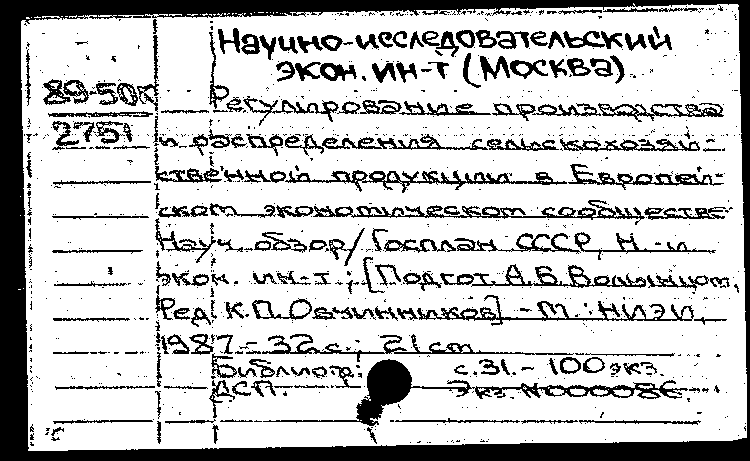 Научно-исследовательский
экон. ин-т (Москва)
89-50К Регулирование производства
2751 и распределения сельскохозяй-
ственной продукции в Европей-
ском экономическом сообществе
Науч. обзор/Госплан СССР, Н.-и.
экон. ин-т.; [Подгот. А.Б. Волынцом,
Ред. К.П. Овчинников] - М.: НИЭИ,
1987.- 32 с.; 21 cm
Библиогр: с.31.- 100 экз.
ДСП. Экз. №000086.